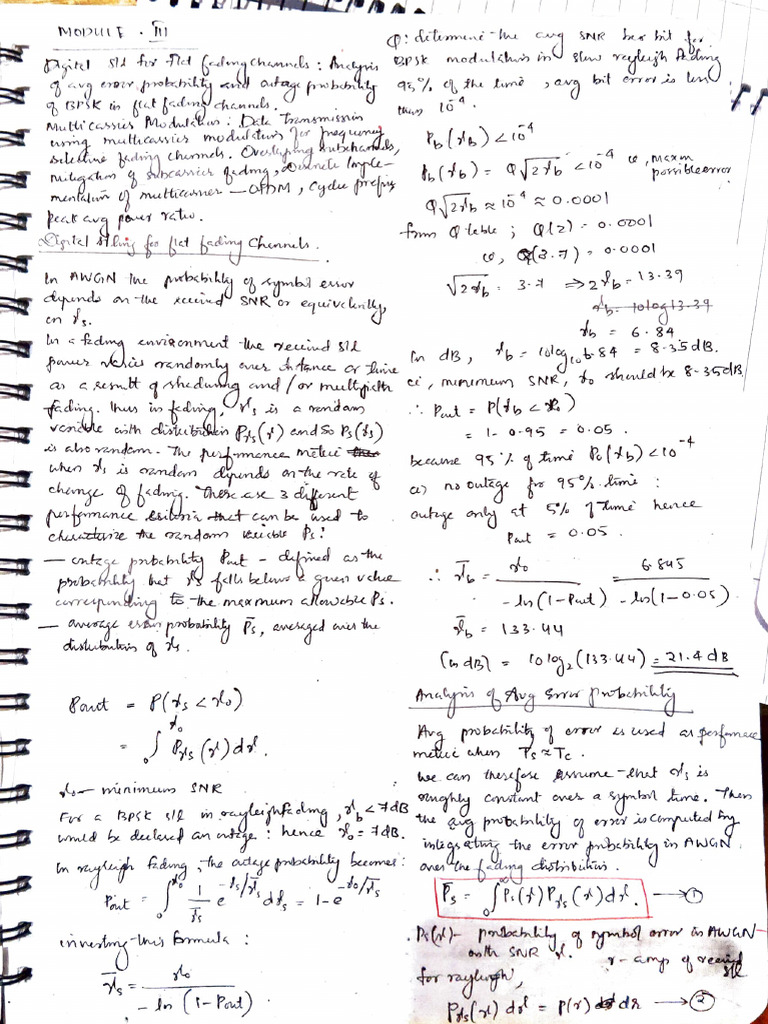 MODULE - III
Digital sll for flat fading channels: Analysis
of avg error probability and outage probability
of BPSK in flat fading channels.
Multicarrier Modulation: Data Transmission
using multicarrier modulation for frequency
selective fading channels. Overlapping subchannels,
mitigation of subcarrier fading, Discrete Imple-
mentation of multicarrier — OFDM, cyclic prefix
peak avg power ratio.
Digital slling for flat fading Channels.
In AWGN the probability of symbol error
depends on the received SNR or equivalently
on γs.
In a fading environment the received sll
power varies randomly over distance or time
as a result of shadowing and/or multipath
fading. Thus in fading, γs is a random
variable with distribution Pγs(γ) and so Ps(γs)
is also random. The performance metric
when γs is random depends on the rate of
change of fading. There are 3 different
performance criteria that can be used to
characterize the random variable Ps:
— outage probability Pout - defined as the
probability that γs falls below a given value
corresponding to the maximum allowable Ps.
— average error probability P̄s, averaged over the
distribution of γs.
Pout = P(γs < γ0)
= ∫₀^γ0 Pγs(γ)dγ.
γ0 — minimum SNR
For a BPSK sll in rayleigh fading, γb < 7dB
would be declared an outage: hence γ0 = 7dB.
In rayleigh fading, the outage probability becomes:
Pout = ∫₀^γ0 1/γ̄s e^(-γs/γ̄s) dγs = 1-e^(-γ0/γ̄s)
inverting this formula:
γ̄s = γ0 / -ln(1-Pout)
Q: determine the avg SNR per bit for
BPSK modulation in slow rayleigh fading
95% of the time, avg bit error is less
than 10^-4.
Pb(γb) < 10^-4
Pb(γb) = Q√2γb < 10^-4 ie, maxm
possible error
Q√2γb ≈ 10^-4 ≈ 0.0001
from Q table; Q(z) = 0.0001
ie, Q(3.7) = 0.0001
√2γb = 3.7 ⇒ 2γb = 13.39
γb = 10log13.39
γb = 6.84
In dB, γb = 10log₁₀6.84 = 8.35dB.
ie, minimum SNR, γ0 should be 8.35dB
∴ Pout = P(γb < γ0)
= 1-0.95 = 0.05.
because 95% of time Pb(γb) < 10^-4
ie) no outage for 95% time:
outage only at 5% of time hence
Pout = 0.05.
∴ γ̄b = γ0 / -ln(1-Pout) 6.845 / -ln(1-0.05)
γ̄b = 133.44
(in dB) = 10log₂(133.44) = 21.4dB
Analysis of Avg Error Probability
Avg probability of error is used as performance
metric when Ts ≈ Tc.
We can therefore assume that γs is
roughly constant over a symbol time. Then
the avg probability of error is computed by
integrating the error probability in AWGN
over the fading distribution.
P̄s = ∫₀^∞ Ps(γ)Pγs(γ)dγ. → ①
Ps(γ) - probability of symbol error in AWGN
with SNR γ. r - amp of received
sll
for rayleigh,
Pγs(γ) dγ = p(r) dr → ②